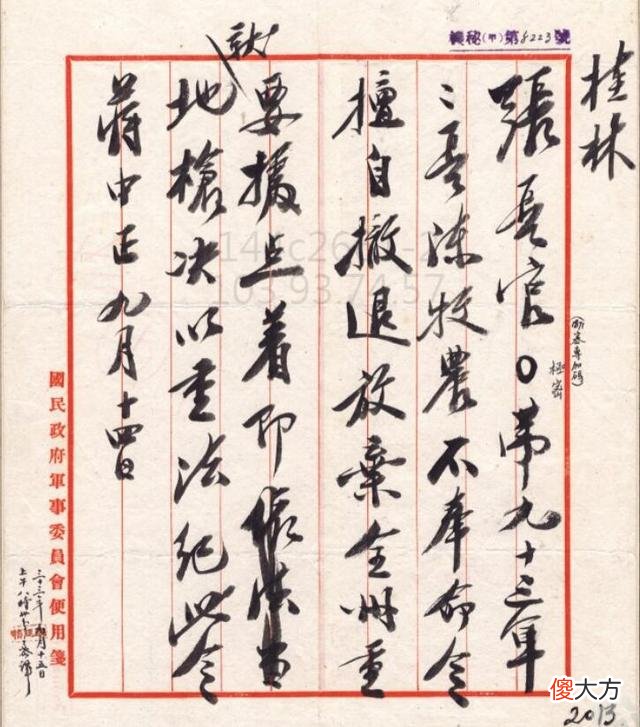 機秘(甲)第8223號
桂林
張長官○第九十三軍
(附密專加碼)
極密
長陳牧農不奉命令
擅自撤退放棄全州重
要據点着即依法
就
地槍決以重法紀此令
蔣中正九月十四日
國民政府軍事委員會便用箋
三十三年九月十五日
上午八時
144c26
103.93.74.57
傻大方
2013